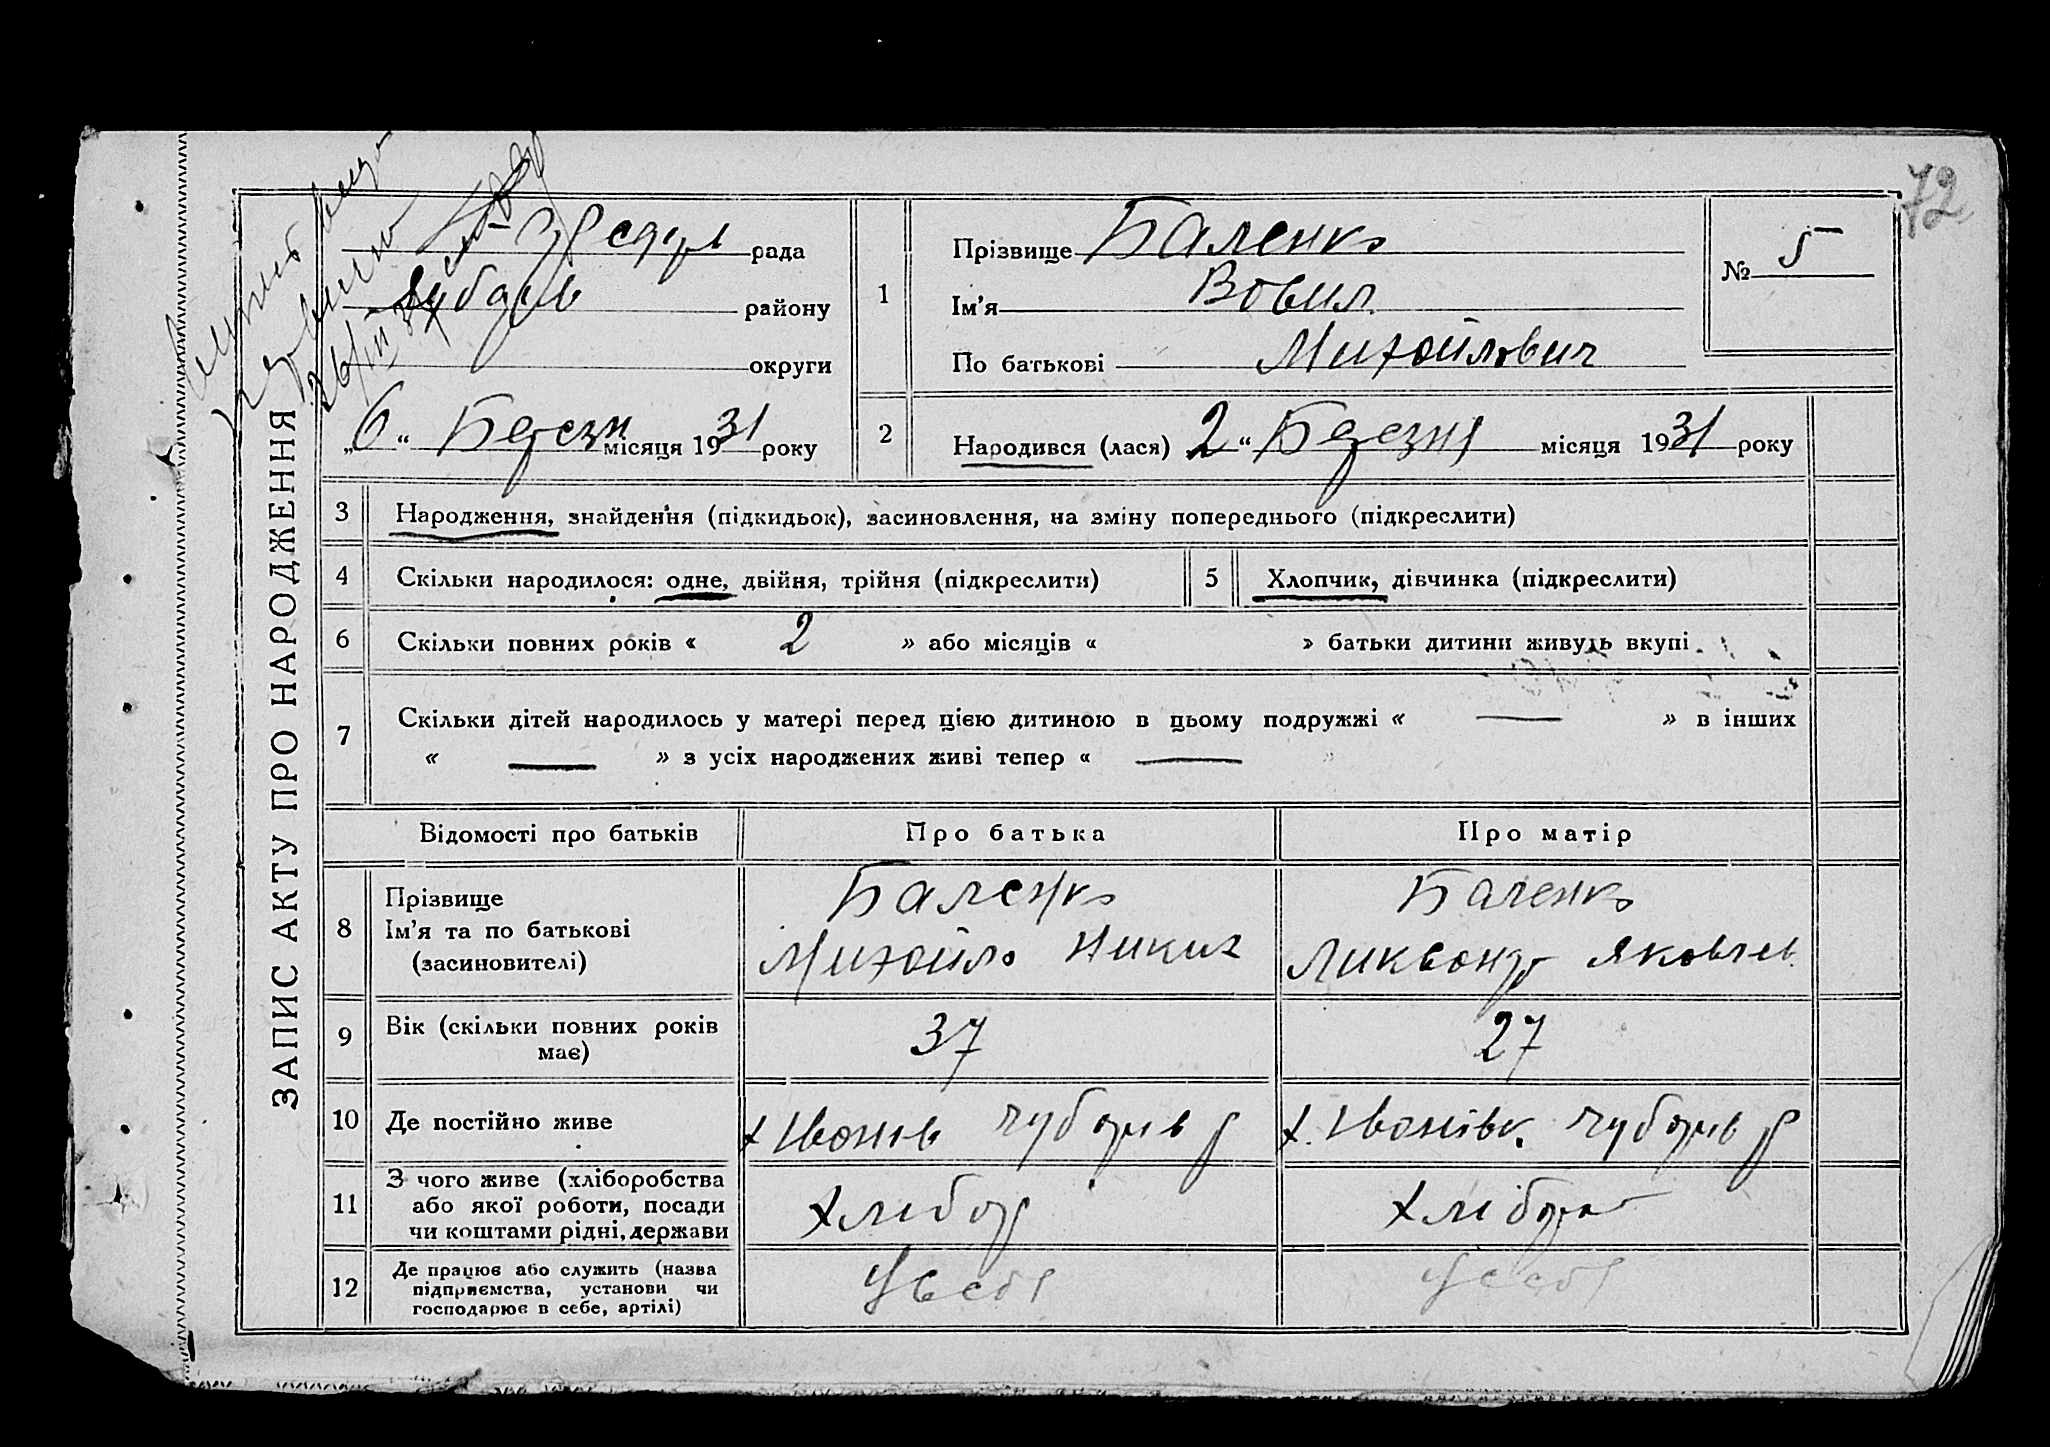 72
ЗАПИС АКТУ ПРО НАРОДЖЕННЯ
рада
району
округи
„6“ Березн місяця 1931 року
1
Прізвище Баленко
Ім'я
По батькові Михайлович
№ 5
2
Народився (лася) 2 “ Березня місяця 1931 року
3 Народження, знайдення (підкидьок), засиновлення, на зміну попереднього (підкреслити)
4 Скільки народилося: одне, двійня, трійня (підкреслити)
5 Хлопчик, дівчинка (підкреслити)
6 Скільки повних років « 2 » або місяців « » батьки дитини живуть вкупі
7 Скільки дітей народилось у матері перед цією дитиною в цьому подружжі « — » в інших
« — » з усіх народжених живі тепер « — »
Відомості про батьків Про батька Про матір
8 Прізвище
Ім'я та по батькові
(засиновителі)
Баленко
Михайло Никит
Баленко
Яковлев.
9 Вік (скільки повних років
має)
37
27
10 Де постійно живе
х Іванів Чубарів р
х. Іванівк. Чубарів р
11 З чого живе (хліборобства
або якої роботи, посади
чи коштами рідні, держави
Хлібор
Хлібор
12 Де працює або служить (назва
підприємства, установи чи
господарює в себе, артілі)
У себе
У себе